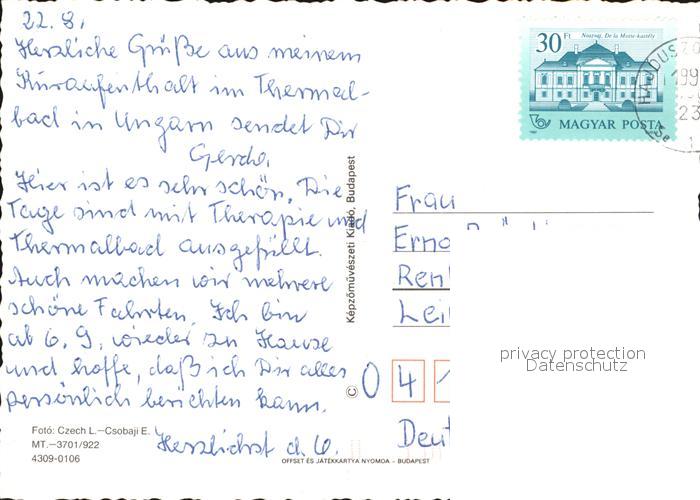 22. 8.
Herzliche Grüße aus meinem
Kuraufenthalt im Thermal-
bad in Ungarn sendet Dir
Gerda.
Hier ist es sehr schön. Die
Tage sind mit Therapie und
Thermalbad ausgefüllt.
Auch machen wir mehrere
schöne Fahrten. Ich bin
ab 6. 9. wieder zu Hause
und hoffe, daß ich Dir alles
persönlich berichten kann.
Herzlichst d. G.
Fotó: Czech L.–Csobaji E.
MT.–3701/922
4309-0106
OFFSET ÉS JÁTÉKKÁRTYA NYOMDA – BUDAPEST
© Képzőművészeti Kiadó, Budapest
30 Ft
Noszvaj, De la Motte-kastély
MAGYAR POSTA
HAJDUSZO
199
23
Frau
Erna
Ren
Lei
0 4 1
Deut
privacy protection
Datenschutz